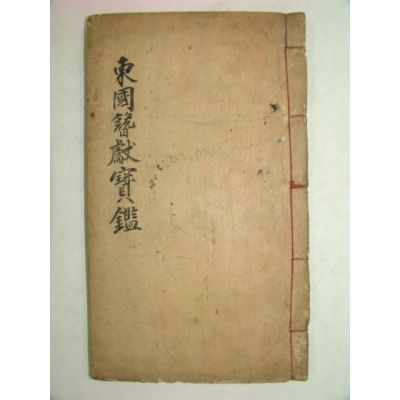 東國簪獻寶鑑